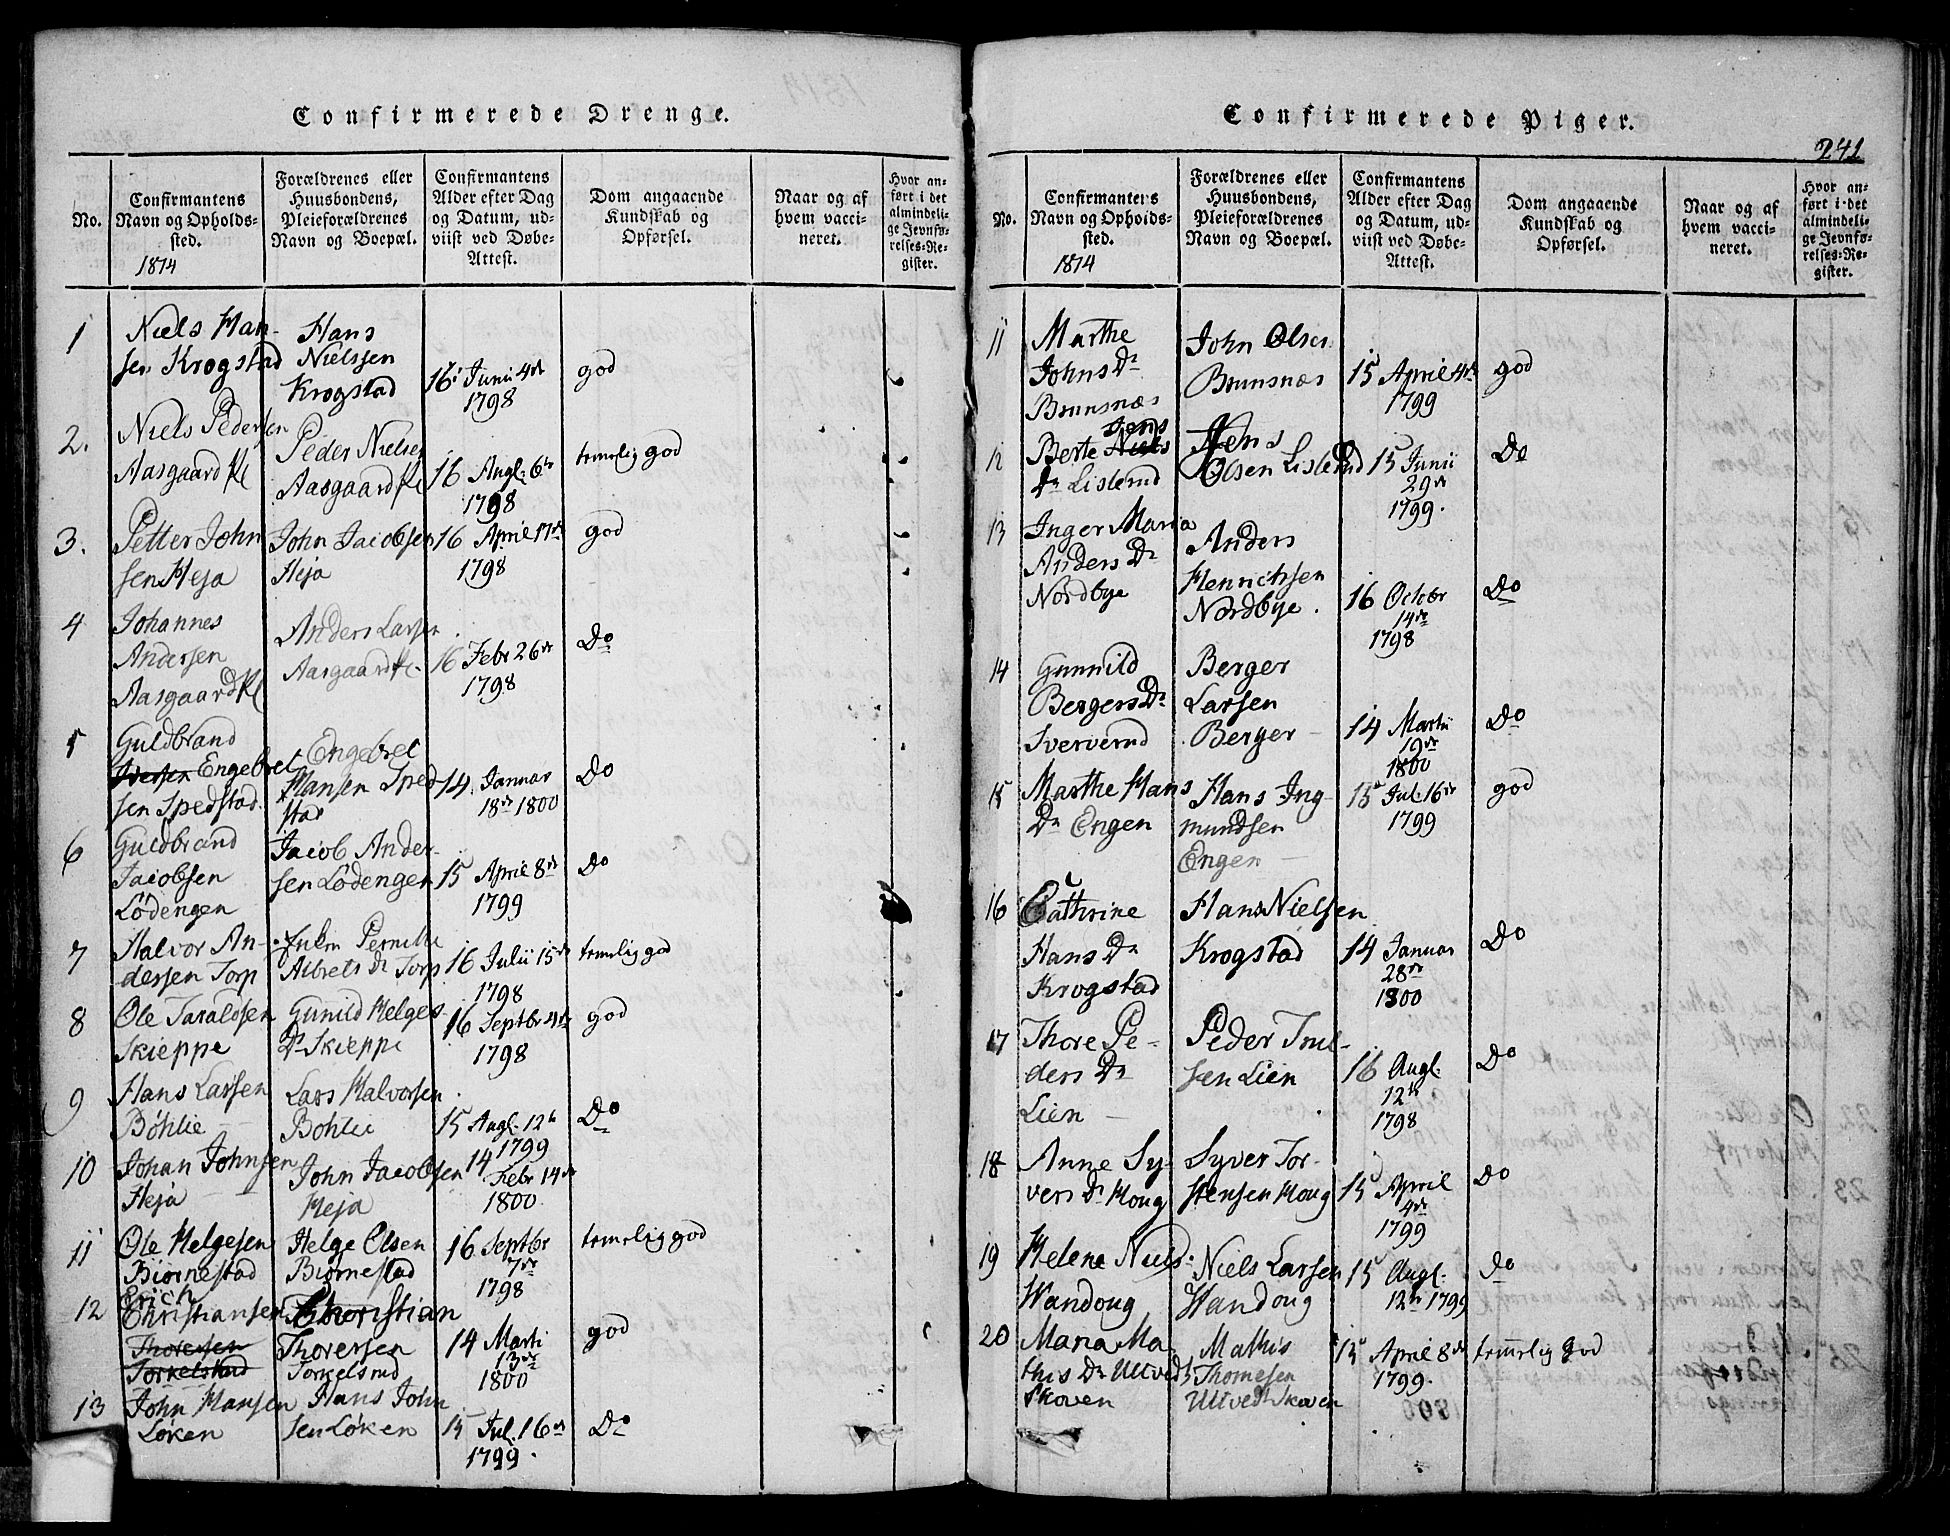 Confirmerede Drenge.
No.
Confirmantens
Navn og Opholds-
sted.
1814
Forældrenes eller
Huusbondens,
Pleieforældrenes
Navn og Boepæl.
Confirmantens
Alder efter Dag
og Datum, ud-
viist ved Døbe-
Attest.
Dom angaaende
Kundskab og
Opførsel.
Naar og af
hvem vacci-
neret.
Hvor an-
ført i det
almindeli-
ge Jevnfø-
relses-Re-
gister.
1
Niels Han-
sen Krogstad
Hans
Nielssen
Krogstad
16 Junii 4de
1798
god
2.
Niels Pedersen
Aasgaard
Peder Nielsen
Aasgaard
16 Augl. 6te
1798
temelig god
3.
Petter John
sen Heja
John Jacobsen
Heja
16 April 17de
1798
god
4
Johannes
Andersen
Aasgaard
Anders Larsen
Aasgaard
16 Febr 26de
1798
Do
5
Guldbrand
Iversen Engebret
sen Spedstad
Engebret
Hansen Sped
stad
14 Januar
18de 1800
Do
6
Guldbrand
Jacobsen
Lödengen
Jacob Ander-
sen Lödengen
15 April 8de
1799
Do
7
Halvor An-
dersen Torp
Pernille
Albrets Dr Torp
16 Julii 15de
1798
temelig god
8
Ole Taraldsen
Skieppe
Gunild Helges
Dr Skieppe
16 Septbr 4de
1798
god
9
Hans Larsen
Böhlie
Lars Halvorsen
Bohlie
15 Augl. 12te
1799
Do
10
Johan Johnsen
Heja
John Jacobsen
Heja
14
Febr 14de
1800
11
Ole Helgesen
Biørnestad
Helge Olsen
Biørnestad
16 Septbr
7de
1798
temelig god
12
Erich
Christiansen
Thoresen
Torkelsrud
Christian
Thoresen
Torkelsrud
14 Marti
13de
1800
god
13
John Hansen
Løken
Hans John
sen Løken
15 Jul. 16de
1799.
Do
Confirmerede Piger.
241
No.
Confirmantens
Navn og Opholds-
sted.
1814
Forældrenes eller
Huusbondens,
Pleieforældrenes
Navn og Boepæl.
Confirmantens
Alder efter Dag
og Datum, ud-
viist ved Døbe-
Attest.
Dom angaaende
Kundskab og
Opførsel.
Naar og af
hvem vacci-
neret.
Hvor an-
ført i det
almindeli-
ge Jevnfø-
relses-Re-
gister.
11
Marthe
Johns Dr
Brunsnæs
John Olsen
Brunsnæs
15 April 4de
1799
god
12
Jens
Berte Niels
Dr Lislerud
Jens
Olsen Lislerud
15 Junii
29de
1799.
Do
13
Inger Maria
Anders Dr
Nordbye
Anders
Henrichsen
Nordbye.
16 Octobr
14de
1798
Do
14
Gunnild
Bergers Dr
Sververud
Berger
Larsen
Berger
14 Martii
19de
1800
Do
15
Marthe Hans
Dr Engen
Hans Ing-
mundsen
Engen
15 Jul. 16de
1799
god
16
Cathrine
Hans Dr
Krogstad
Hans Nielsen
Krogstad
14 Januar
28de
1800
Do
17
Thore Pe-
ders Dr
Lien
Peder Trul-
sen Lien
16 Augl.
12te
1798
Do
18
Anne Sy-
vers Dr Houg
Syver Tor-
stensen Houg
15 April
4de
1799
Do
19
Helene Niels
Wandoug
Niels Larsen
Wandoug
15 Augl.
12te 1799
Do
20
Maria Ma-
this Dr Utved
Skoven
Mathis
Thomesen
Utved Skoven
15 April 8de
1799.
temelig god